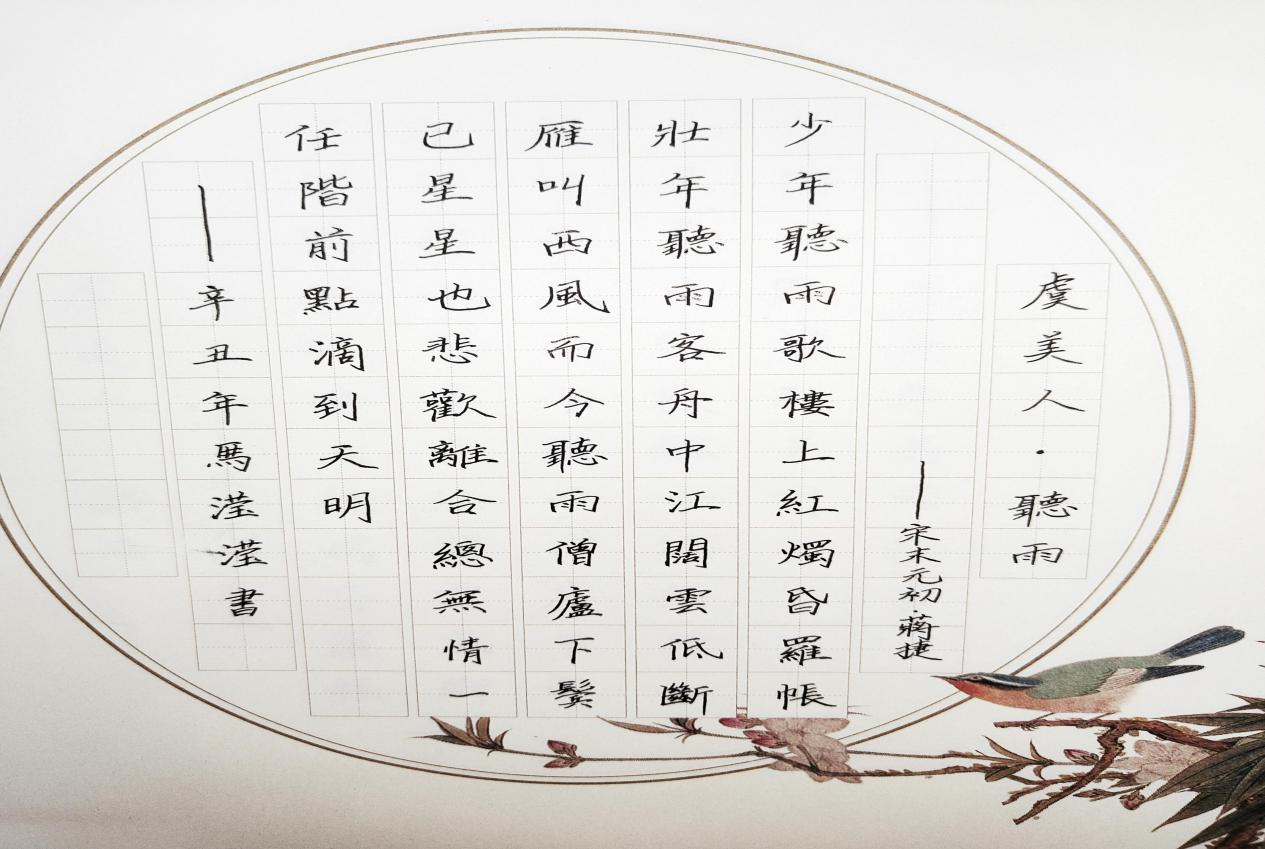 虞美人·聽雨
——宋末元初·蔣捷
少年聽雨歌樓上紅燭昏羅帳
壯年聽雨客舟中江闊雲低斷
雁叫西風而今聽雨僧廬下鬢
已星星也悲歡離合總無情一
任階前點滴到天明
——辛丑年馬滢滢書